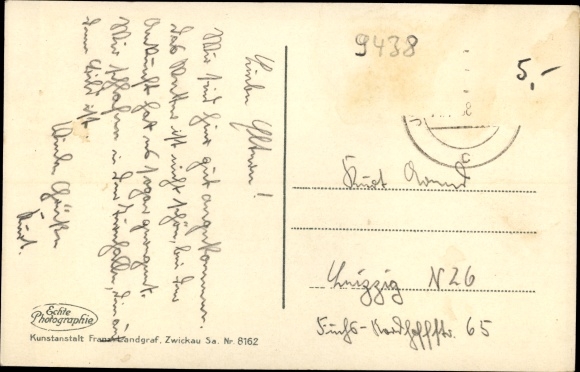 Liebe Eltern!
Wir sind hier gut angekommen.
das Wetter ist nicht schön, bei der
Ankunft hat es sogar geregnet.
Wir schlafen in der Turnhalle,
denn ist
Viele Grüße
Kurt.
9438
5,-
Kurt
Leipzig N 26
65
Echte
Photographie
Kunstanstalt Franz Landgraf, Zwickau Sa. Nr. 8162